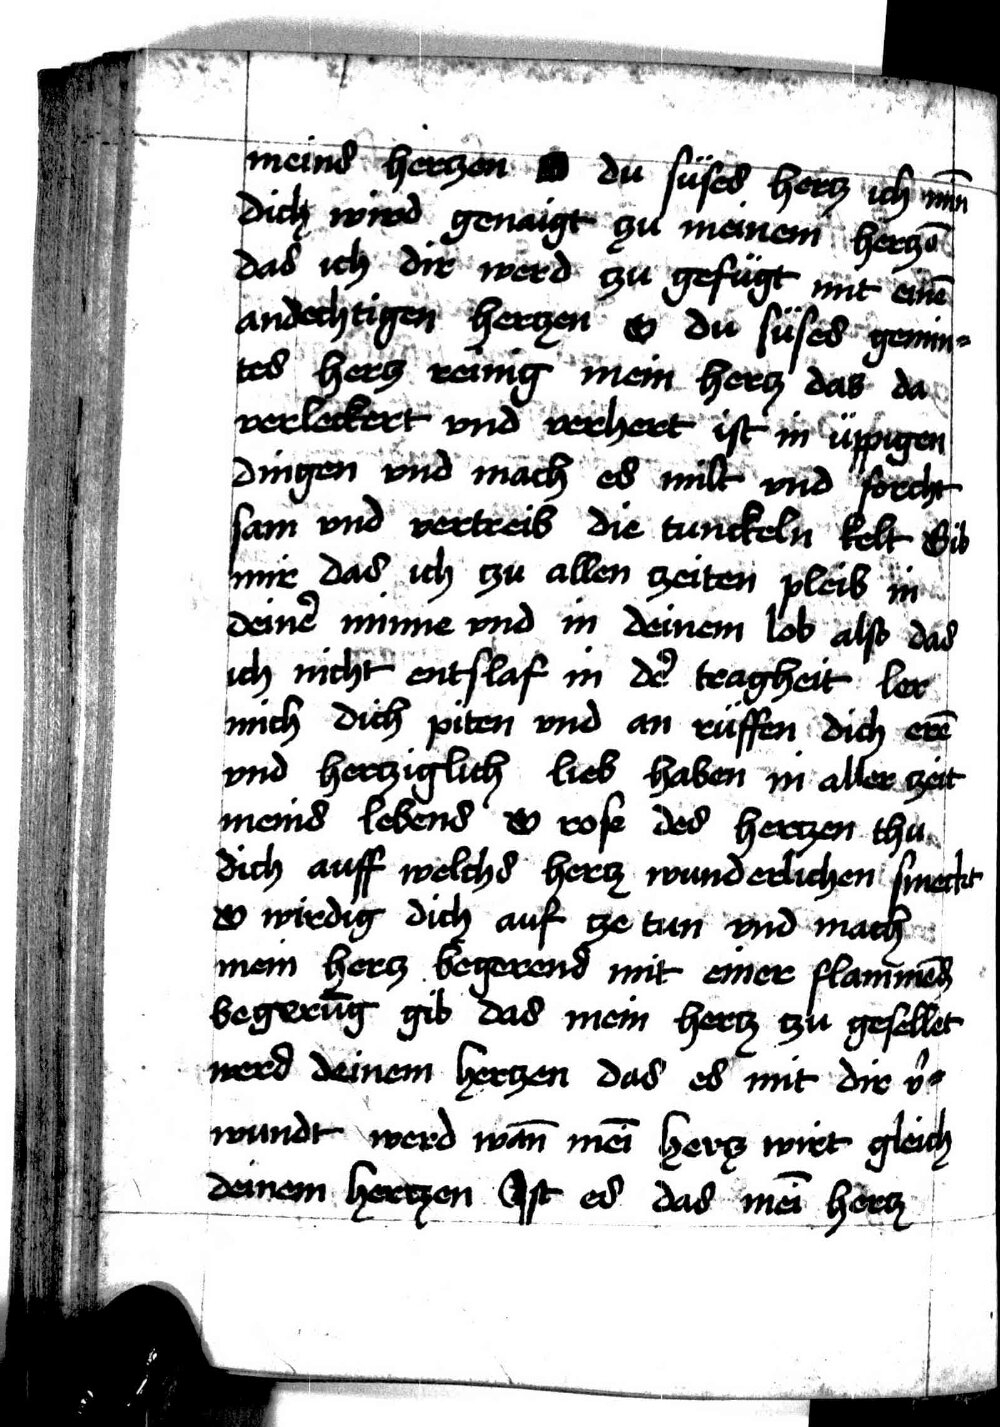 meins hertzen O du süses hertz ich min̄
dich wird genaigt zu meinem hertzē
das ich dir werd zu gefügt mit einē
andechtigen hertzen O du süses gemin-
tes hertz reinig mein hertz das da
verleckert vnd verhert ist in üppigen
dingen vnd mach es milt vnd forcht
sam vnd vertreib die tunckeln kelt Gib
mir das ich zu allen zeiten pleib in
deiner minne vnd in deinem lob also das
ich nicht entslaf in der tragheit ler
mich dich piten vnd an rüffen dich erē
vnd hertziglich lieb haben in aller zeit
meins lebens O rose des hertzen thu
dich auff welchs hertz wunderlichen smeckt
O wirdig dich auf ze tun vnd mach
mein hertz begerend mit einer flammēd
begerūg gib das mein hertz zu gesellet
werd deinem hertzen das es mit dir v̾-
wundt werd wan̄ mēi hertz wirt gleich
deinem hertzen Ist es das mēi hertz